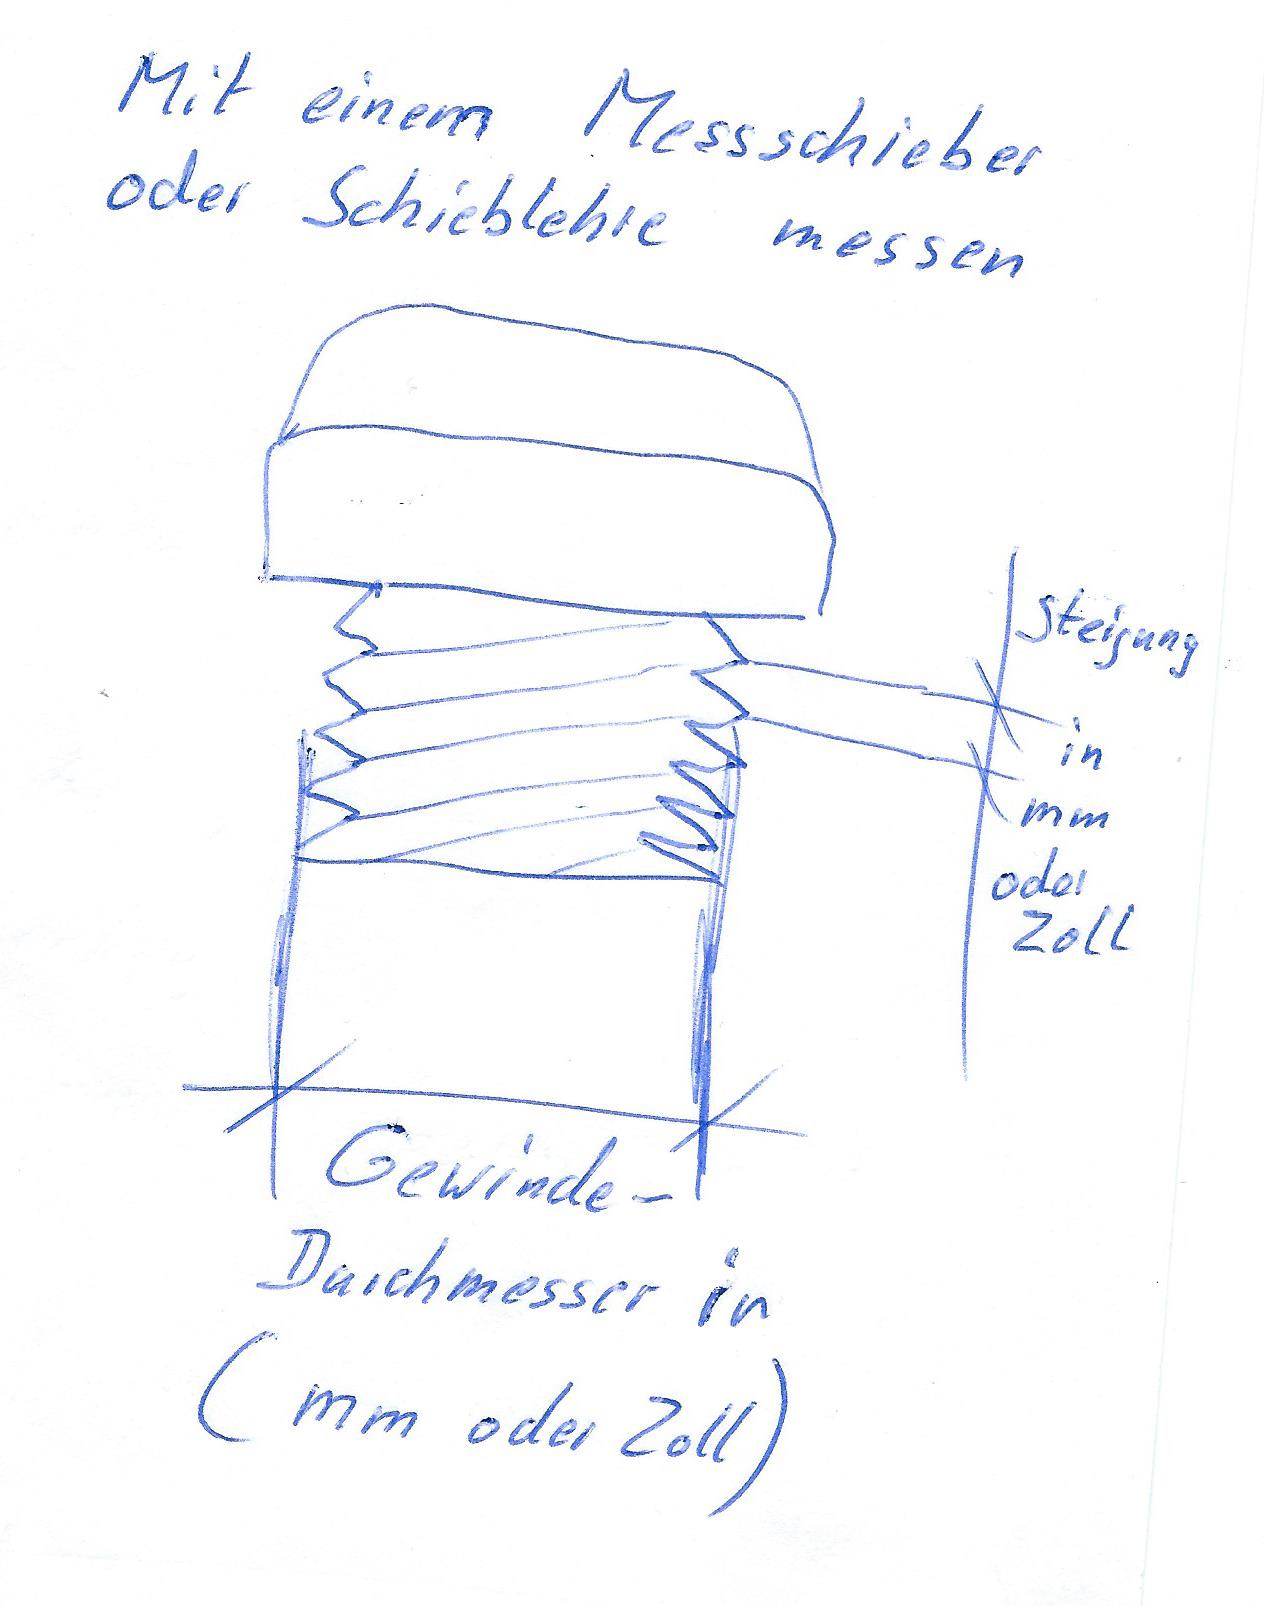 Mit einem Messschieber
oder Schieblehre messen
Steigung
in
mm
oder
Zoll
Gewinde-
Durchmesser in
(mm oder Zoll)